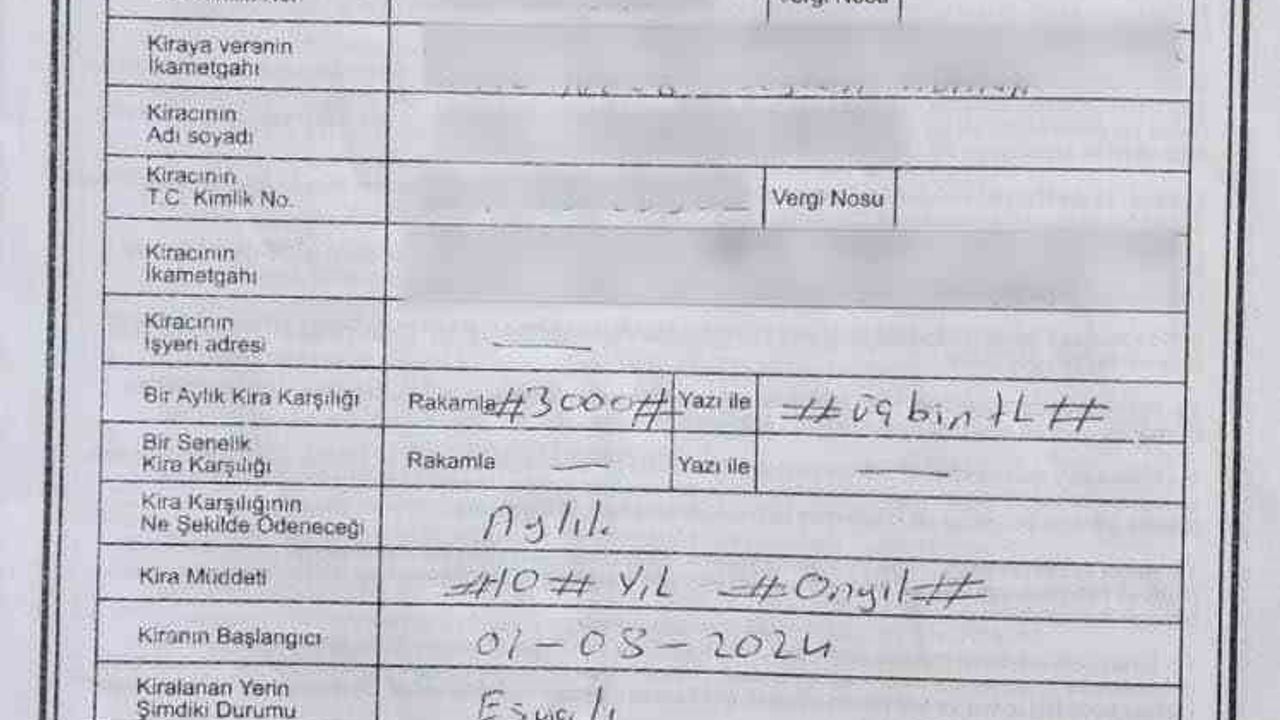 Vergi Nosu
Kiraya verenin
İkametgahı
Kiracının
Adı soyadı
Kiracının
T.C. Kimlik No.
Vergi Nosu
Kiracının
İkametgahı
Kiracının
İşyeri adresi
Bir Aylık Kira Karşılığı Rakamla #3000# Yazı ile ## üç bin tL ##
Bir Senelik
Kira Karşılığı Rakamla — Yazı ile —
Kira Karşılığının
Ne Şekilde Ödeneceği Aylık
Kira Müddeti #10# YıL #Onyıl##
Kiranın Başlangıcı 01-08-2024
Kiralanan Yerin
Şimdiki Durumu Eşyalı